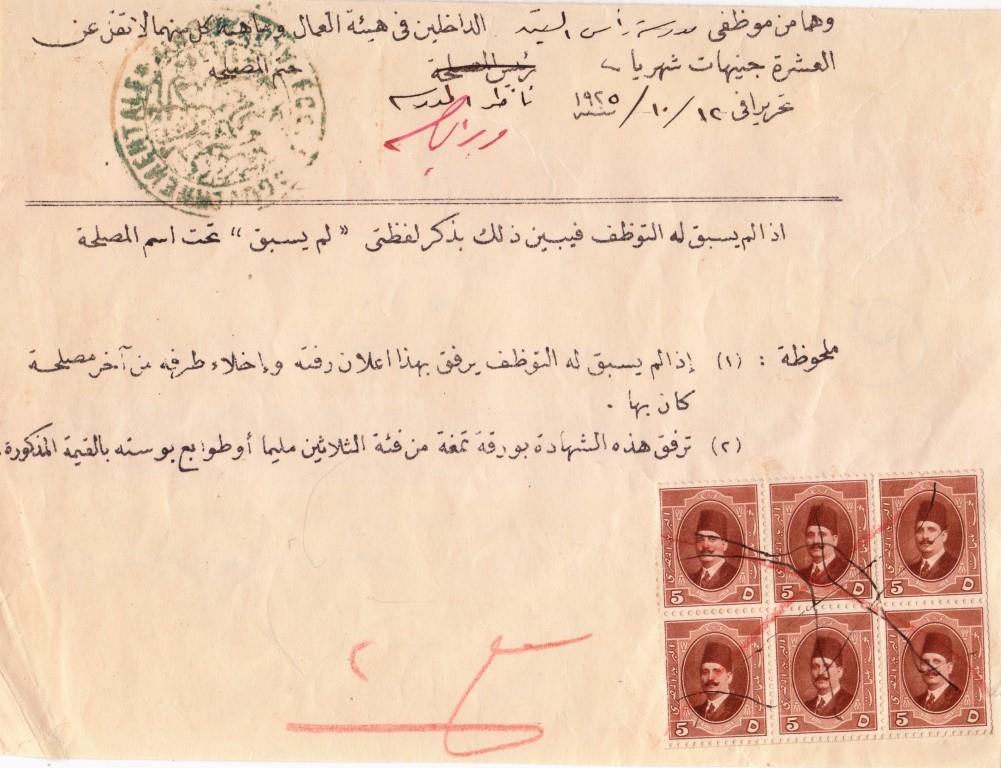 وهما من موظفى مدرسة رأس التين الداخلين فى هيئة العمال وماهية كل منهما لا تقل عن
العشرة جنيهات شهريا
رئيس المصلحة
ختم المصلحة
تحريرا فى ١٢/١٠/سنة ١٩٢٥
ناظر المدرسة
GOUVERNEMENTALE
اذا لم يسبق له التوظف فيبين ذلك بذكر لفظتى "لم يسبق" تحت اسم المصلحة
ملحوظة : (١) إذا لم يسبق له التوظف يرفق بهذا اعلان رفته وإخلاء طرفه من آخر مصلحة
كان بها .
(٢) ترفق هذه الشهادة بورقة تمغة من فئة الثلاثين مليما أو طوابع بوسته بالقيمة المذكورة.
5 ٥
5 ٥
5 ٥
5 ٥
5 ٥
5 ٥